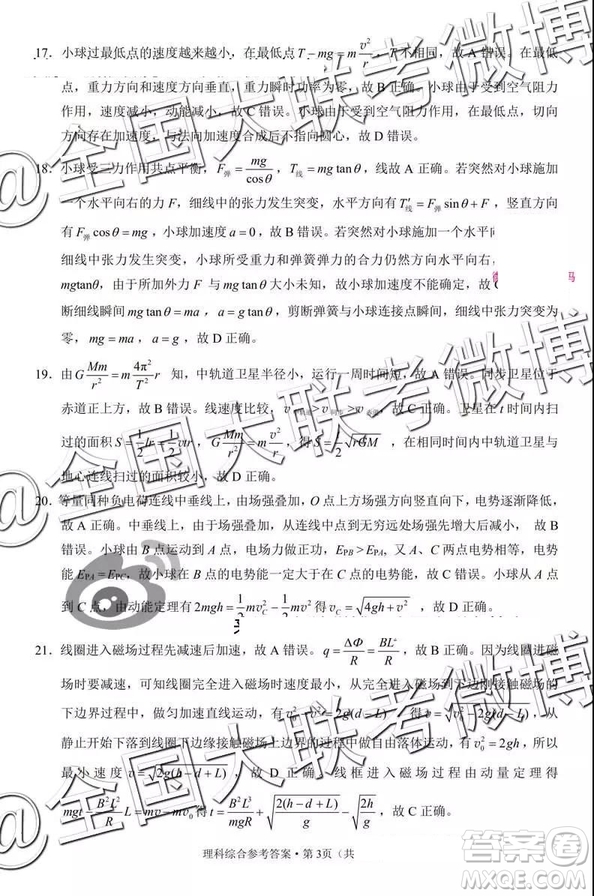 17. 小球过最低点的速度越来越小，在最低点 T − mg = m v²/r，T 不相同，故 A 错误。在最低
点，重力方向和速度方向垂直，重力瞬时功率为零，故 B 正确。小球由于受到空气阻力
作用，速度减小，动能减小，故 C 错误。小球由于受到空气阻力作用，在最低点，切向
方向存在加速度，与法向加速度合成后不指向圆心，故 D 错误。
18. 小球受三力作用共点平衡，F弹 = mg/cosθ，T线 = mg tanθ，故 A 正确。若突然对小球施加
一个水平向右的力 F，细线中的张力发生突变，水平方向有 T′线 = F弹 sinθ + F，竖直方向
有 F弹 cosθ = mg，小球加速度 a = 0，故 B 错误。若突然对小球施加一个水平向
细线中张力发生突变，小球所受重力和弹簧弹力的合力仍然方向水平向右，
mg tanθ，但由于外力 F 与 mg tanθ 大小未知，故小球加速度不能确定，故 C
断细线瞬间 mg tanθ = ma，a = g tanθ，剪断弹簧与小球连接点瞬间，细线中张力突变为
零，mg = ma，a = g，故 D 正确。
19. 由 G Mm/r² = m 4π²/T² r 知，中轨道卫星半径小，运行一周时间短，故 A 错误。同步卫星位于
赤道正上方，故 B 错误。线速度比较，故 C 正确。卫星在 t 时间内扫
过的面积 S = ½lr = ½vtr，G Mm/r² = m v²/r，得 S = t/2 √rGM，在相同时间内中轨道卫星与
地心连线扫过的面积较小，故 D 正确。
20. 等量同种负电荷连线中垂线上，由场强叠加，O 点上方场强方向竖直向下，电势逐渐降低，
故 A 错误。中垂线上，由于场强叠加，从连线中点到无穷远处场强先增大后减小，故 B
错误。小球由 B 点运动到 A 点，电场力做正功，EPB > EPA，又 A、C 两点电势相等，电势
能 EPA = EPC，故小球在 B 点的电势能一定大于在 C 点的电势能，故 C 错误。小球从 A 点
到 C 点，由动能定理有 2mgh = ½mv²C − ½mv² 得 vC = √4gh + v²，故 D 正确。
21. 线圈进入磁场过程先减速后加速，故 A 错误。q = ΔΦ/R = BL²/R，故 B 正确。因为线圈进
磁场时要减速，可知线圈完全进入磁场时速度最小，从完全进入磁场到刚接触磁场的
下边界过程中，做匀加速直线运动，有 v₀² − v² = 2g(d − L)，得 v = √v₀² − 2g(d − L)，从
静止开始下落到线圈刚接触磁场上边界的过程中做自由落体运动，有 v₀² = 2gh，所以
最小速度 v = √2g(h − d + L)，故 D 正确。线框进入磁场过程由动量定理得
mgt − B²L²/R L = mv − mv₀ 得 t = B²L³/mgR + √2(h − d + L)/g − √2h/g，故 C 错误。
理科综合参考答案·第 3页（共